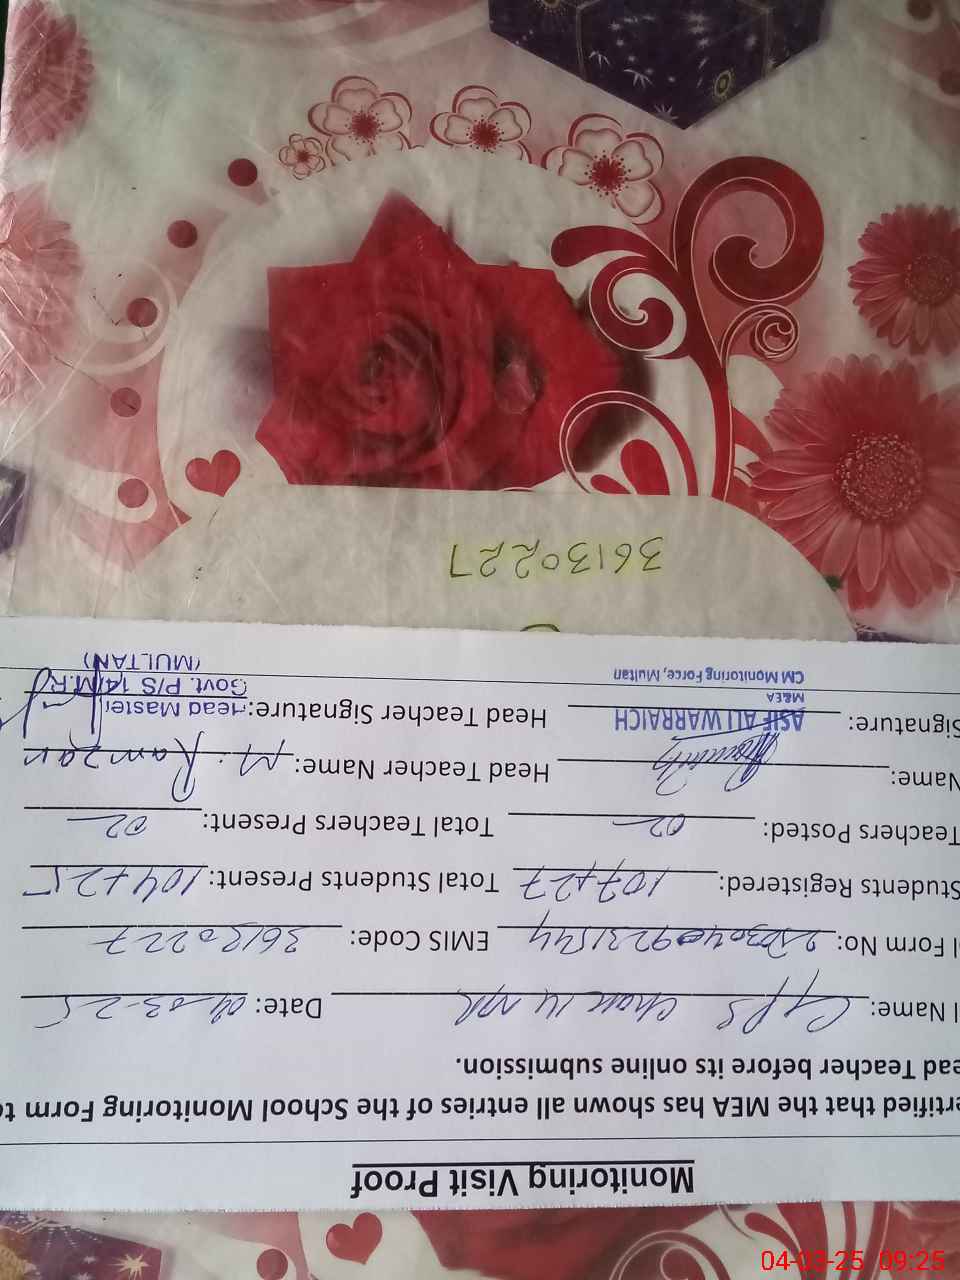 Monitoring Visit Proof
ertified that the MEA has shown all entries of the School Monitoring Form to
ead Teacher before its online submission.
l Name: GPS Chak 14 MR Date: 04-03-25
l Form No: EMIS Code: 36130227
Students Registered: 107+27 Total Students Present: 104+25
Teachers Posted: 02 Total Teachers Present: 02
Name: Head Teacher Name: M. Ramzan
Signature: ASIF ALI WARRAICH Head Teacher Signature: Head Master
M&EA Govt. P/S 14/M.R
CM Monitoring Force, Multan (MULTAN)
36130227
04-03-25 09:25